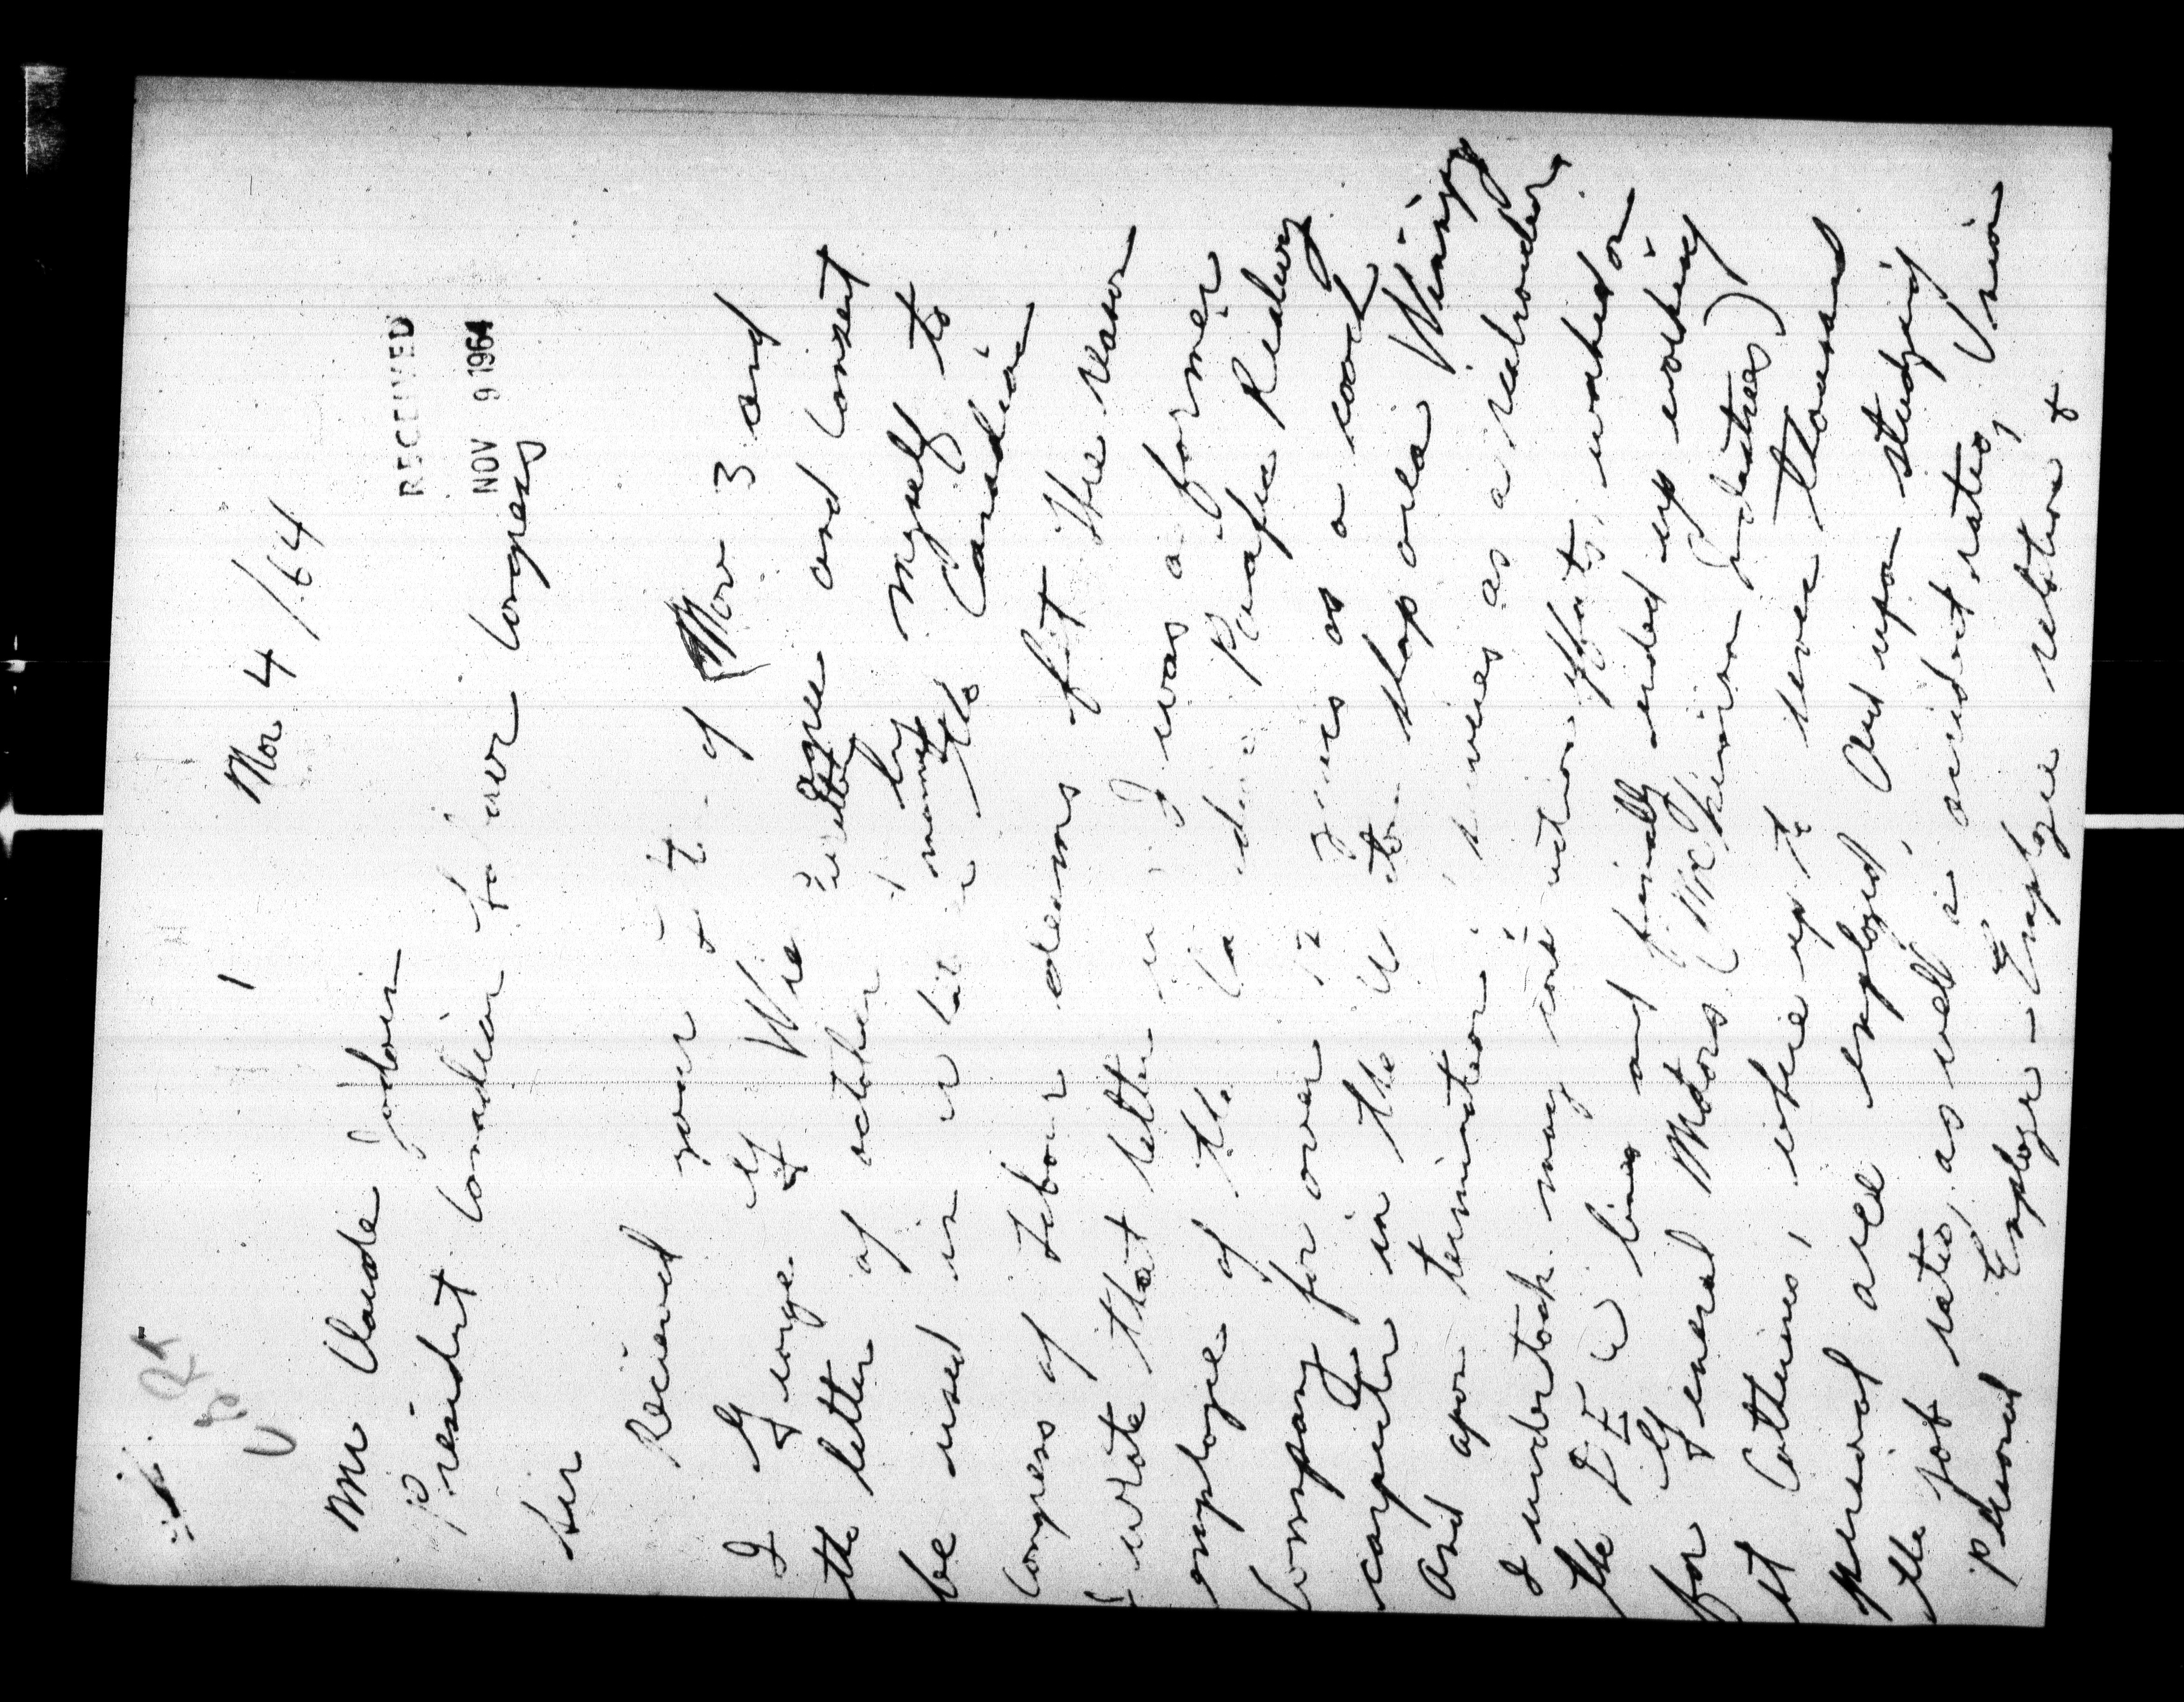 1
Nov 4 /64
RECEIVED
NOV 9 1964
Mr Claude Jodoin
President Canadian Labour Congress
Sir
Received your of Nov 3 and
I George G agree and consent
the letter of october written by myself to
be used in the Canadian
Congress of Labour deems fit the reason
I wrote that letter is I was a former
employee of the Canadian Pacific Railway
Company for over 12 years as a coach
carpenter in the Weston shop area Winnipeg
and upon termination services as a railroader
I undertook many construction efforts, worked on
the DEW line and finally ended up working
for General Motors (McKinnon Industries)
st Catherines, where up to seven thousand
personal are employed, and upon studying
the job rates, as well as accident rates,
personal Employer - Employee relation & Union